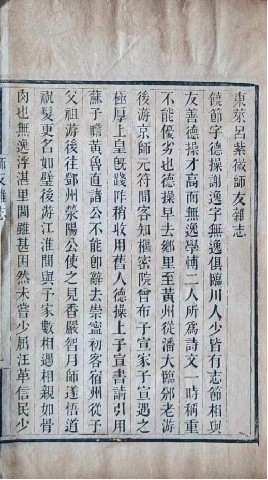 東萊呂紫微師友雜志
饒節字德操謝逸字無逸俱臨川人少皆有志節相與
友善德操才高而無逸學博二人所爲詩文一時稱重
不能優劣也德操早去鄉里至黃州從潘大臨邠老游
後游京師元符間客知樞密院曾布子宣家子宣遇之
極厚上皇旣踐阼稍收用舊人德操上子宣書請引用
蘇子瞻黃魯直諸公不能卽辭去崇寧初客宿州從予
父祖游後往鄧州滎陽公使之見香嚴智月師遂悟道
祝髮更名如璧後游江淮間與予家數相遇相親如骨
肉也無逸浮湛里閭雖甚困然未嘗少屈汪革信民少
師友雜志